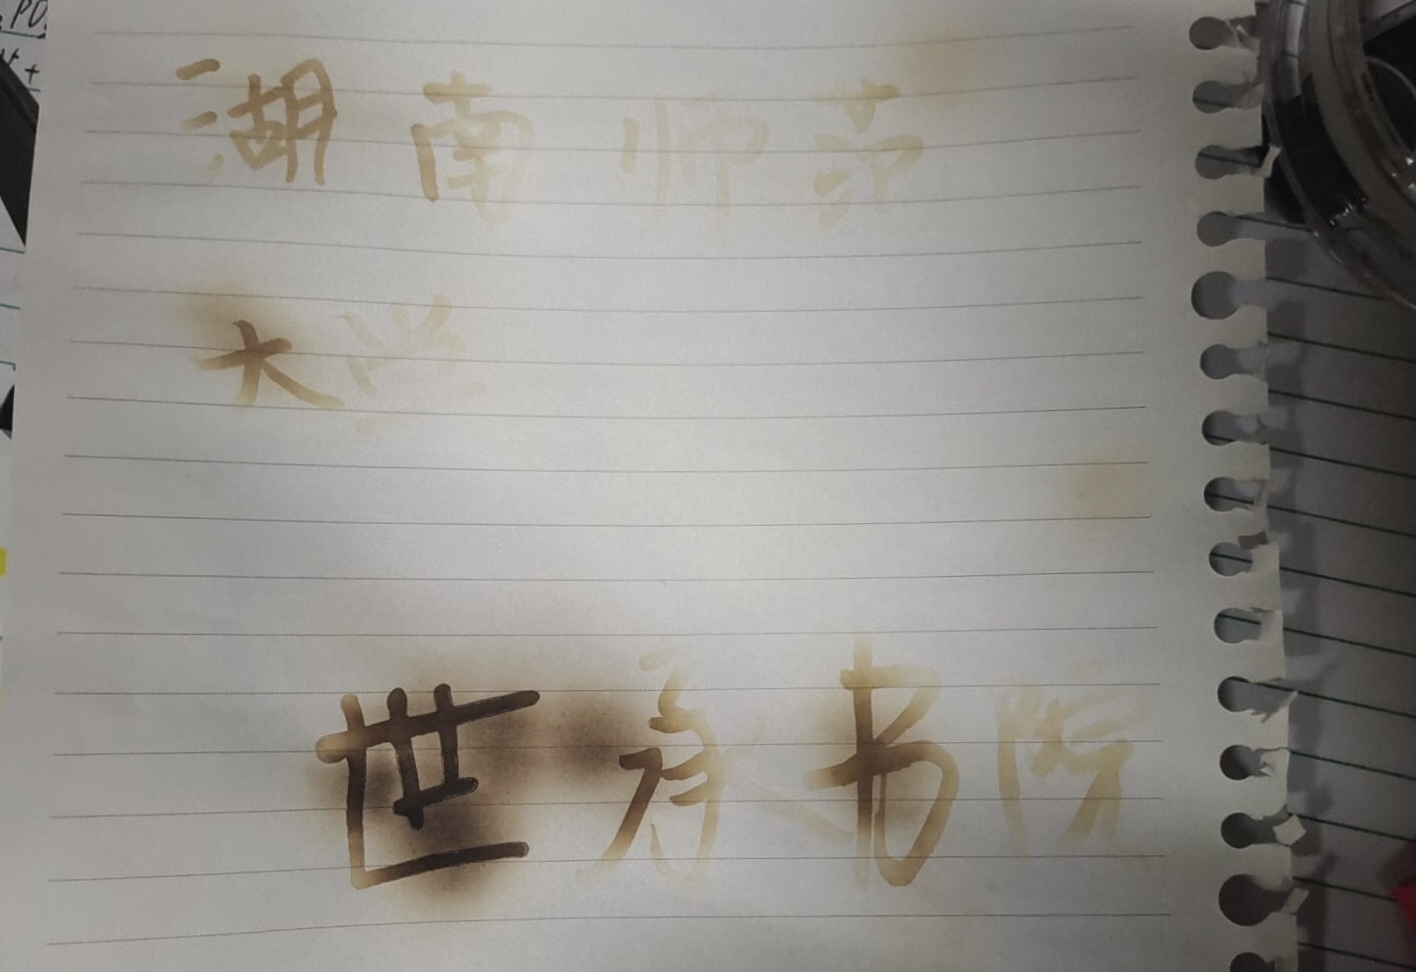 湖南师范
大学
世承书院